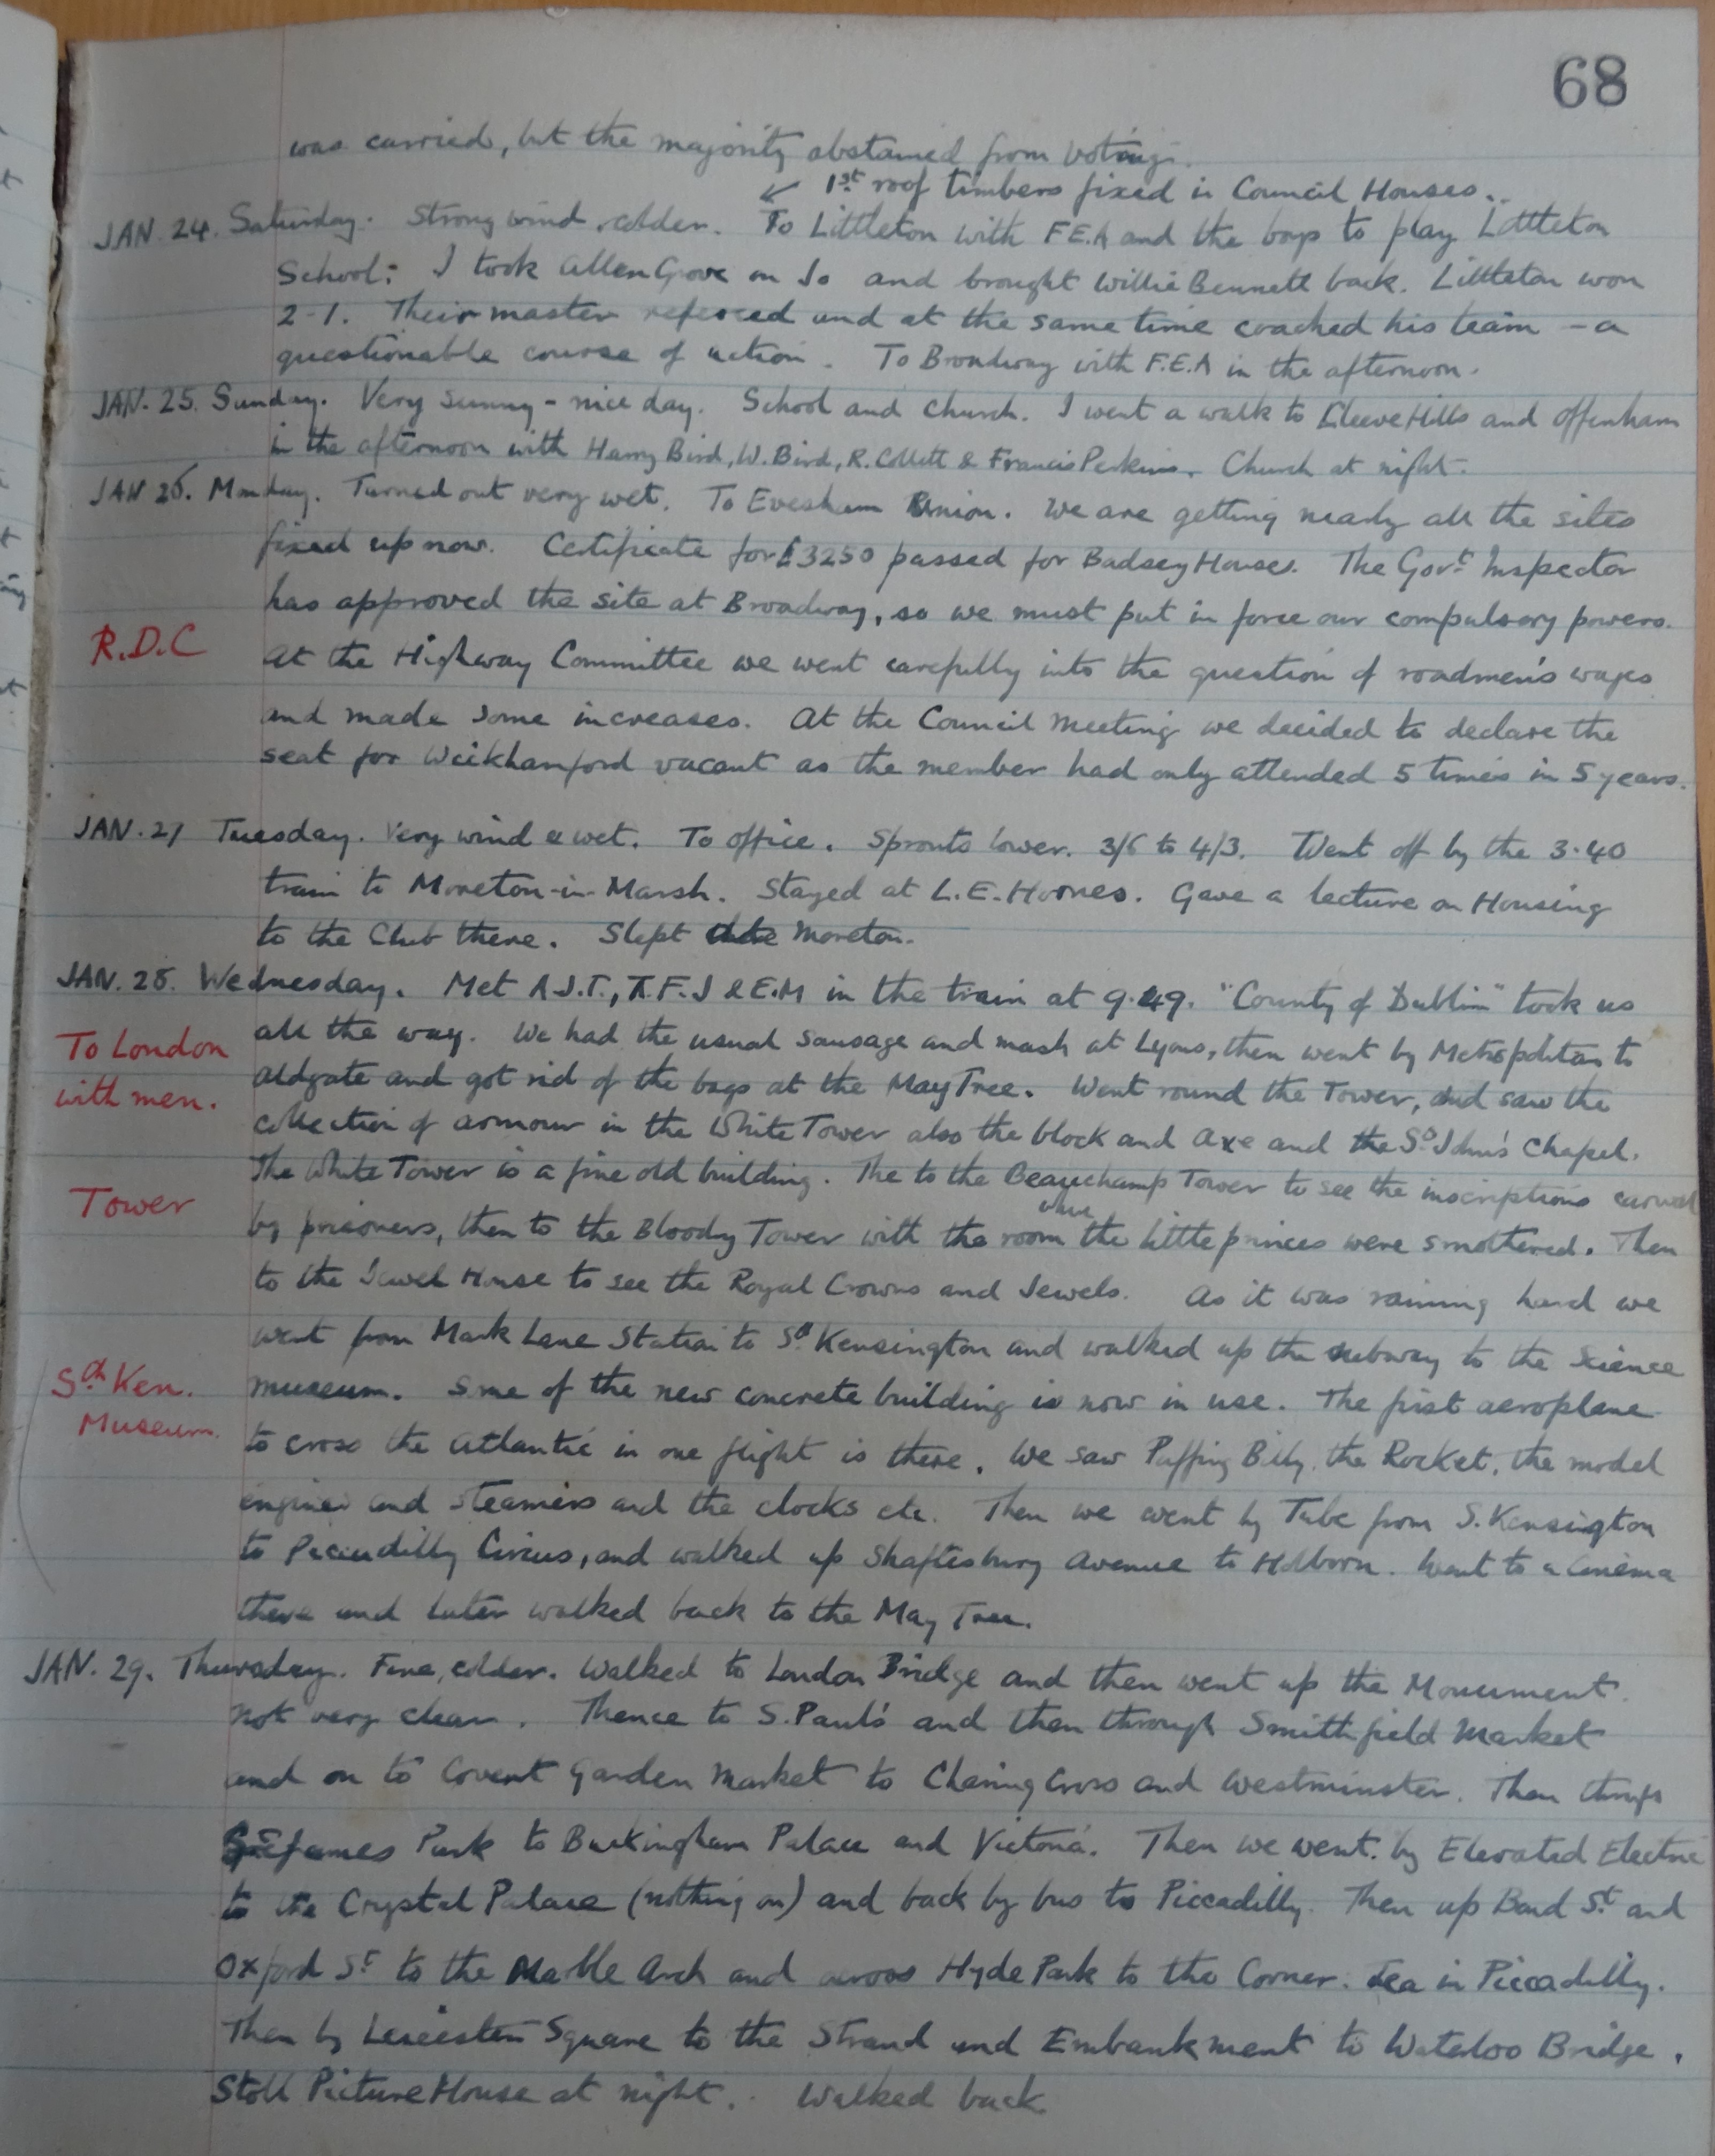 68
was carried, but the majority abstained from voting.
↙ 1st roof timbers fixed in Council Houses.
JAN. 24. Saturday. Strong wind, colder. To Littleton with F.E.A and the boys to play Littleton
School: I took Allen Grove on Jo and brought Willie Bennett back. Littleton won
2-1. Their master refereed and at the same time coached his team – a
questionable course of action. To Broadway with F.E.A in the afternoon.
JAN. 25. Sunday. Very sunny – nice day. School and Church. I went a walk to Cleeve Hills and Offenham
in the afternoon with Harry Bird, W. Bird, R. Collett & Francis Perkins. Church at night.
JAN 26. Monday. Turned out very wet. To Evesham Union. We are getting nearly all the sites
fixed up now. Certificate for £3250 passed for Badsey Houses. The Govt Inspector
has approved the site at Broadway, so we must put in force our compulsory powers.
R.D.C
At the Highway Committee we went carefully into the question of roadmen's wages
and made some increases. At the Council Meeting we decided to declare the
seat for Wickhamford vacant as the member had only attended 5 times in 5 years.
JAN. 27 Tuesday. Very wind & wet. To office. Sprouts lower. 3/6 to 4/3. Went off by the 3.40
train to Moreton-in-Marsh. Stayed at L.E. Hornes. Gave a lecture on Housing
to the Club there. Slept Moreton.
JAN. 28. Wednesday. Met A.J.T., T.F.J & E.M in the train at 9.49. "County of Dublin" took us
To London
with men.
all the way. We had the usual sausage and mash at Lyons, then went by Metropolitan to
Aldgate and got rid of the bags at the May Tree. Went round the Tower, and saw the
collection of armour in the White Tower also the block and axe and the St John's Chapel.
Tower
The White Tower is a fine old building. The to the Beauchamp Tower to see the inscriptions carved
by prisoners, then to the Bloody Tower with the room where the little princes were smothered. Then
to the Jewel House to see the Royal Crowns and Jewels. As it was raining hard we
went from Mark Lane Station to Sth Kensington and walked up the subway to the Science
Sth Ken.
Museum.
museum. Some of the new concrete building is now in use. The first aeroplane
to cross the Atlantic in one flight is there. We saw Puffing Billy, the Rocket, the model
engines and steamers and the clocks etc. Then we went by Tube from S. Kensington
to Piccadilly Circus, and walked up Shaftesbury Avenue to Holborn. Went to a Cinema
there and later walked back to the May Tree.
JAN. 29. Thursday. Fine, colder. Walked to London Bridge and then went up the Monument.
Not very clear. Thence to S. Paul's and then through Smithfield Market
and on to Covent Garden Market to Charing Cross and Westminster. Then through
St James Park to Buckingham Palace and Victoria. Then we went by Elevated Electric
to the Crystal Palace (nothing on) and back by bus to Piccadilly. Then up Bond St and
Oxford St to the Marble Arch and across Hyde Park to the Corner. Tea in Piccadilly.
Then by Leicester Square to the Strand and Embankment to Waterloo Bridge.
Stoll Picture House at night. Walked back